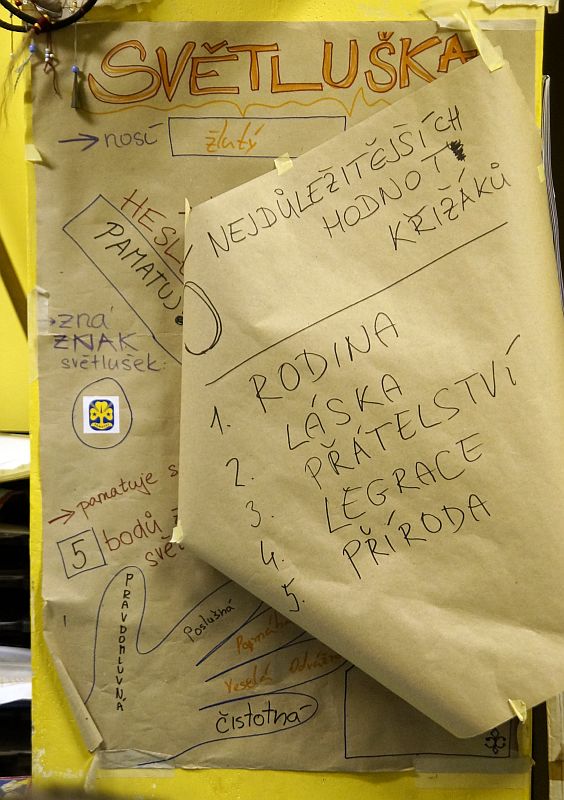 SVĚTLUŠKA
→ nosí žlutý
HESL
PAMATUJ!
→ zná
ZNAK
světlušek:
→ pamatuje s
5 bodů
svě
PRAVDOMLUVNÁ
Poslušná
Veselá Odvážn
čistotná
NEJDŮLEŽITĚJŠÍCH
HODNOT
KŘIŽÁKŮ
1. RODINA
2. LÁSKA
3. PŘÁTELSTVÍ
4. LEGRACE
5. PŘÍRODA